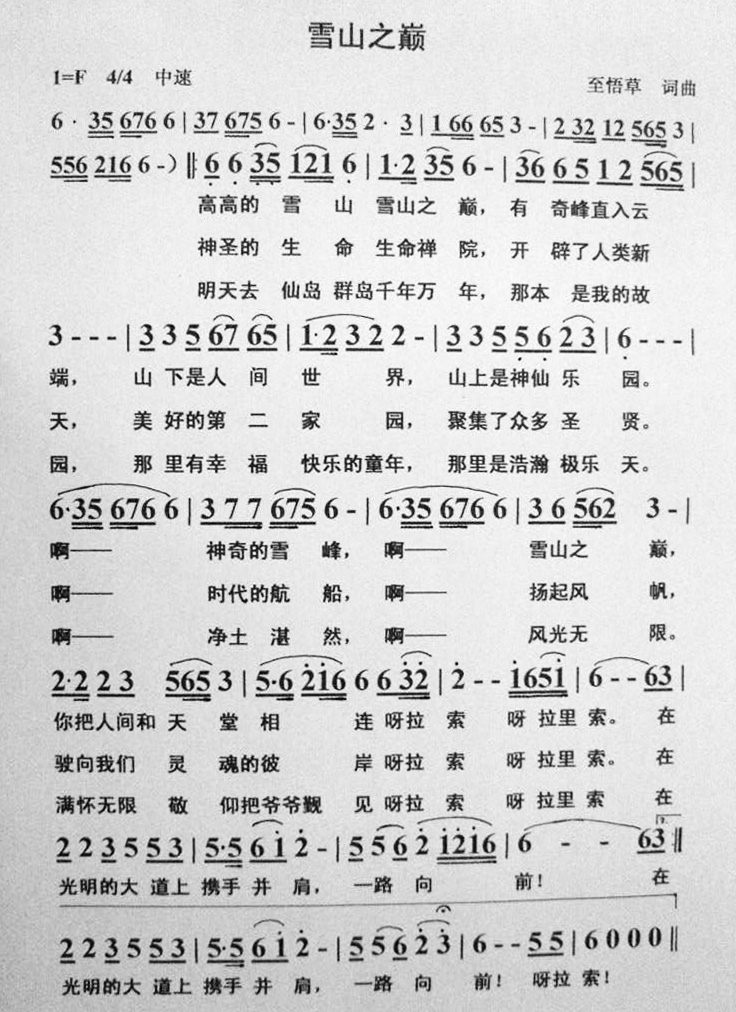 雪山之巅
1=F 4/4 中速
至悟草 词曲
6 · 35 676 6 | 37 675 6 - | 6·35 2 · 3 | 1 66 65 3 - | 2 32 12 565 3 |
556 216 6 -）‖: 6 6 35 121 6 | 1·2 35 6 - | 36 6 5 1 2 565 |
高高的 雪 山 雪山之 巅， 有 奇峰直入云
神圣的 生 命 生命禅 院， 开 辟了人类新
明天去 仙岛 群岛千年万 年， 那本 是我的故
3 - - - | 3 3 5 67 65 | 1·2 3 2 2 - | 3 3 5 5 6 2 3 | 6 - - - |
端， 山 下是人 间 世 界， 山上是神仙 乐 园。
天， 美 好的第 二 家 园， 聚集了众多 圣 贤。
园， 那 里有幸 福 快乐的童年， 那里是浩瀚 极乐 天。
6·35 676 6 | 3 7 7 675 6 - | 6·35 676 6 | 3 6 562 3 - |
啊—— 神奇的雪 峰， 啊—— 雪山之 巅，
啊—— 时代的航 船， 啊—— 扬起风 帆，
啊—— 净土 湛 然， 啊—— 风光无 限。
2·2 2 3 565 3 | 5·6 216 6 6 32 | 2 - - 1651 | 6 - - 63 |
你把人间和 天 堂 相 连 呀拉 索 呀 拉里 索。 在
驶向我们 灵 魂的彼 岸 呀拉 索 呀 拉里 索。 在
满怀无限 敬 仰把爷爷觐 见 呀拉 索 呀 拉里 索 在
2 2 3 5 5 3 | 5·5 6 1 2 - | 5 5 6 2 1216 | 6 - - 63 :‖
光明的大 道上 携手 并 肩， 一路 向 前！ 在
2 2 3 5 5 3 | 5·5 6 1 2 - | 5 5 6 2 3 | 6 - - 5 5 | 6 0 0 0 ‖
光明的大 道上 携手 并 肩， 一路 向 前！ 呀拉 索！